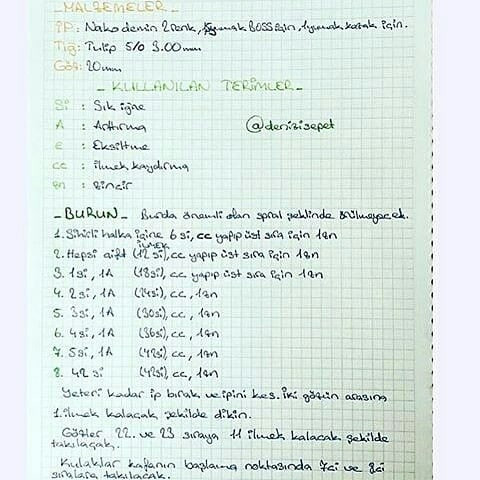 _MALZEMELER_
İP: Nako denim 2 renk, 1 yumak BOSS için, 1 yumak kazak için.
Tığ: Tulip 5/0 3.00mm
Göz: 20mm
_ KULLANILAN TERİMLER_
Si : Sık iğne
A : Arttırma
E : Eksiltme
cc : ilmek kaydırma
zn : zincir
@denizisepet
_BURUN_ Burda önemli olan spiral şeklinde örülmeyecek.
1. Sihirli halka içine 6 si, cc yapıp üst sıra için 1zn
2. Hepsi çift İLMEK (12si), cc yapıp üst sıra için 1zn
3. 1si, 1A (18si) cc yapıp üst sıra için 1zn
4. 2si, 1A (24si), cc, 1zn
5. 3si, 1A (30si) cc, 1zn
6. 4si, 1A (36si) cc, 1zn
7. 5si, 1A (42si) cc, 1zn
8. 42 si (42si), cc, 1zn
Yeteri kadar ip bırak ve ipini kes. İki gözün arasına
1. ilmek kalacak şekilde dikin.
Gözler 22. ve 23 sıraya 11 ilmek kalacak şekilde
takılacak.
Kulaklar kafanın başlama noktasında 7ci ve 8ci
sıralara takılacak.